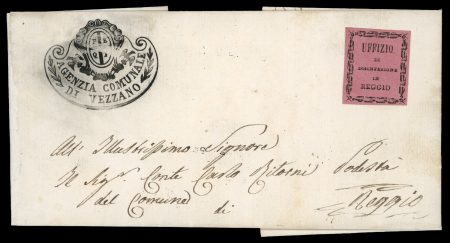 AGENZIA COMUNALE
DI VEZZANO
UFFIZIO
DI
IN
REGGIO
All' Illustrissimo Signore
Il Sigr. Conte Carlo Ritorni Podestà
del Comune di
Reggio